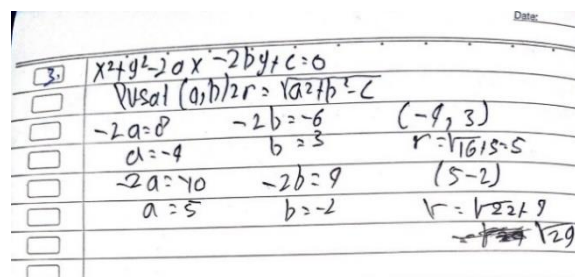 Date:
3. x²+y²-2ax-2by+c=0
Pusat (a,b) 2r = √a²+b²-c
-2a=8 -2b=-6 (-4, 3)
a=-4 b=3 r=√16+9=5
-2a=-10 -2b=4 (5-2)
a=5 b=-2 r=√25+4
√29